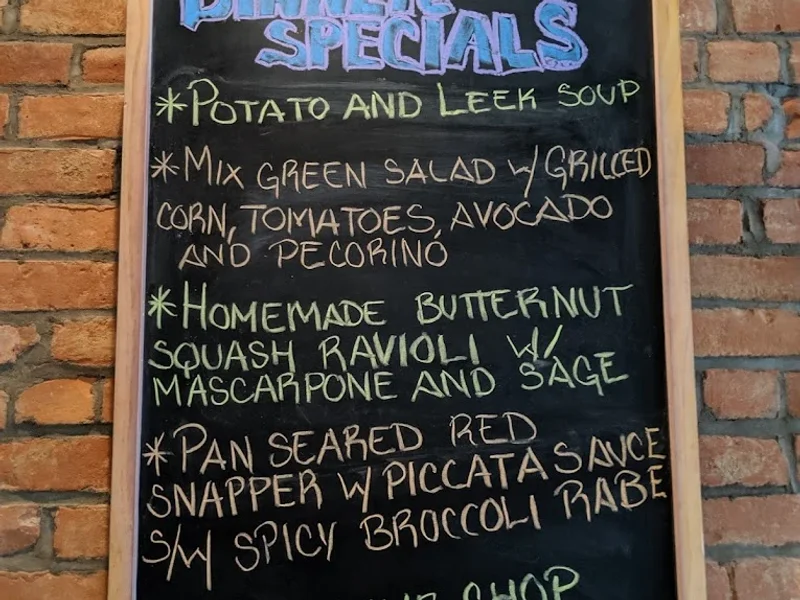 DINNER
SPECIALS
*POTATO AND LEEK SOUP
*MIX GREEN SALAD W/ GRILLED
CORN, TOMATOES, AVOCADO
AND PECORINO
*HOMEMADE BUTTERNUT
SQUASH RAVIOLI W/
MASCARPONE AND SAGE
*PAN SEARED RED
SNAPPER W PICCATA SAUCE
S/W SPICY BROCCOLI RABE
CHOP